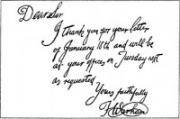 Dear Sir
I thank you for your letter
of January 18th and will be
at your office on Tuesday next
as requested
Yours faithfully